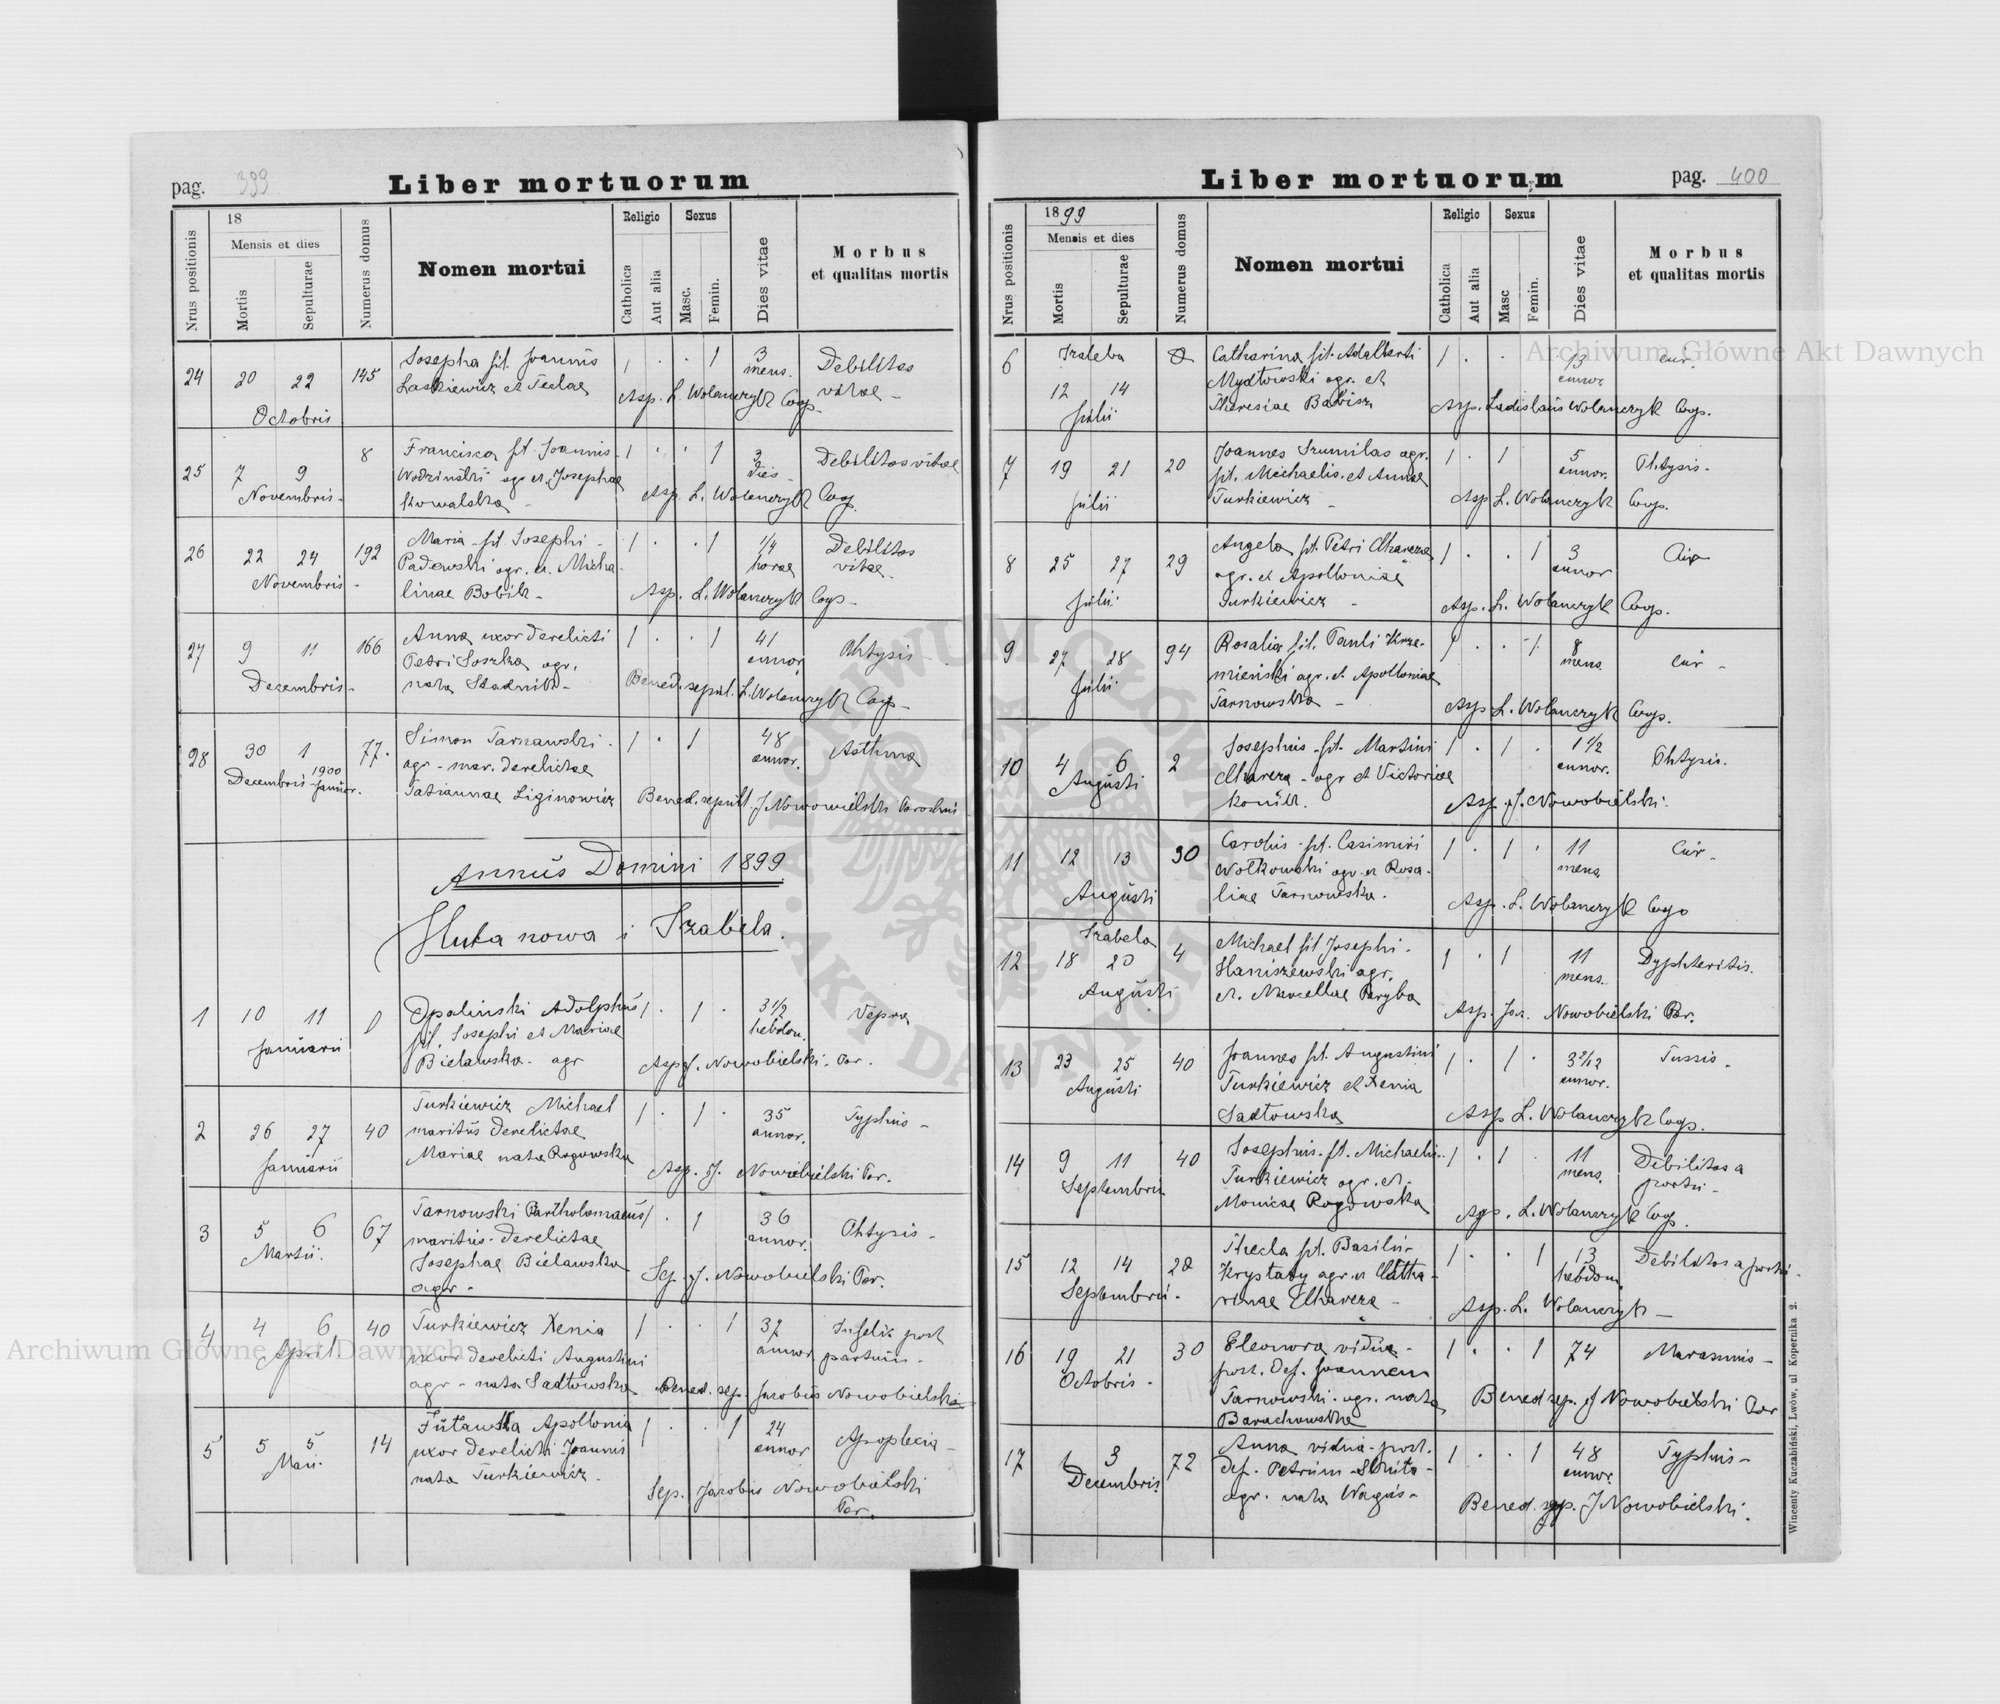 pag. 399
Liber mortuorum
Nrus positionis
18
Mensis et dies
Mortis
Sepulturae
Numerus domus
Nomen mortui
Religio
Catholica
Aut alia
Sexus
Masc.
Femin.
Dies vitae
Morbus
et qualitas mortis
24 20 22 145 Josepha fil. Joannis 1 . . 1 3 Debilitas
Laskiewicz et Teclae mens. vitae -
Octobris Asp. L. Wolanczyk Coop.
25 7 9 8 Francisca fil. Joannis 1 . . 1 3 Debilitas vitae
Novembris - agr. et Josephae dies -
Kowalska - Asp. L. Wolanczyk Coop.
26 22 24 192 Maria fil. Josephi - 1 . . 1 1/4 Debilitas
Novembris - Padewski agr. et Micha- horae vitae -
linae Bobik - Asp. L. Wolanczyk Coop -
27 9 11 166 Anna uxor derelicti 1 . . 1 41 Phtysis -
Decembris - Petri Soszka agr. annor
nata Stadnik - Bened. sepul. L. Wolanczyk Coop -
28 30 1 77. Simon Tarnawski - 1 . 1 48 Asthma
Decembris 1900 Januar. agr - mar. derelictae annor.
Tatiannae Liginowicz Bened. sepult. J Nowowielski Parochus
Annus Domini 1899
Huta nowa i Izabela.
1 10 11 Opalinski Adolphus 1 . 1 . 3 1/2 Vepra
Januarii fil. Josephi et Mariae hebdom.
Bielawska - agr Asp J. Nowobielski - Par.
2 26 27 40 Turkiewicz Michael 1 . 1 . 35 Typhus -
Januarii maritus derelictae annor.
Mariae nata Rogowska Asp. J. Nowobielski Par.
3 5 6 67 Tarnowski Bartholomaeus 1 . 1 36 Phtysis -
Martii. maritus derelictae annor.
Josephae Bielawska
agr - Sep. J. Nowobielski Par.
4 4 6 40 Turkiewicz Xenia 1 . . 1 37 post
April uxor derelicti Augustini annor partum -
agr - nata Sadłowska Bened. sep. Jacobus Nowobielski
5 5 5 14 Apollonia 1 . . 1 24 Apoplexia -
Maii. uxor derelicti Joannis annor
nata Turkiewicz - Sep. Jacobus Nowobielski
Par.
Liber mortuorum
pag. 400
Nrus positionis
1899
Mensis et dies
Mortis
Sepulturae
Numerus domus
Nomen mortui
Religio
Catholica
Aut alia
Sexus
Masc
Femin.
Dies vitae
Morbus
et qualitas mortis
6 Catharina fil. Adalberti 1 . . 13 cur.
12 14 agr. et annor
Julii Theresiae Babisz Asp. Ladislaus Wolanczyk Coop.
7 19 21 20 Joannes Szumilas agr. 1 . 1 5 Phtysis -
fil. Michaelis et Annae annor.
Julii Turkiewicz - Asp L. Wolanczyk Coop.
8 25 27 29 Angela fil. Petri 1 . . 1 3
agr. et Apolloniae annor
Julii Turkiewicz - Asp. L. Wolanczyk Coop.
9 27 28 94 Rosalia fil. Pauli Krze- 1 . . 1 8 cur -
Julii mienski agr. et Apolloniae mens
Tarnowska - Asp L. Wolanczyk Coop.
10 4 6 2 Josephus fil. Martini 1 . 1 . 1 1/2 Phtysis.
Augusti agr et Victoriae annor.
Konik. Asp. J. Nowobielski.
11 12 13 30 Carolus fil. Casimiri 1 . 1 . 11 Cur -
Wołkowski agr. et Rosa- mens
Augusti liae Tarnowska. Asp. L. Wolanczyk Coop
Izabela
12 18 20 4 Michael fil Josephi - 1 . 1 11 Dyphteritis.
Haniszewski agr. mens.
Augusti et Marcellae Paryba Asp. Jac. Nowobielski Par.
13 23 25 40 Joannes fil. Augustini 1 . 1 . 3 2/12 Tussis -
Augusti Turkiewicz et Xenia annor.
Sadłowska Asp L. Wolanczyk Coop.
14 9 11 40 Josephus fil. Michaelis 1 . 1 . 11 Debilitas a
Septembris Turkiewicz agr. et. mens. partu -
Monicae Rogowska Asp. L. Wolanczyk Coop.
15 12 14 28 Thecla fil. Basilii 1 . . 1 13 Debilitas a partu -
Septembris - Krystaty agr. et Catha- hebdom
rinae Asp. L. Wolanczyk -
16 19 21 30 Eleonora vidua - 1 . . 1 74 Marasmus -
Octobris - post. def. Joannem
Tarnowski agr. nata Bened sep. J Nowobielski Par
Barachowska
17 1 3 72 Anna vidua post. 1 . . 1 48 Typhus -
Decembris def. Petrum annor.
agr. nata Wagas - Bened. sep. J Nowobielski.
Wincenty Kuczabiński, Lwów, ul Kopernika 2.
Archiwum Główne Akt Dawnych
Archiwum Główne Akt Dawnych
ARCHIWUM GŁÓWNE AKT DAWNYCH